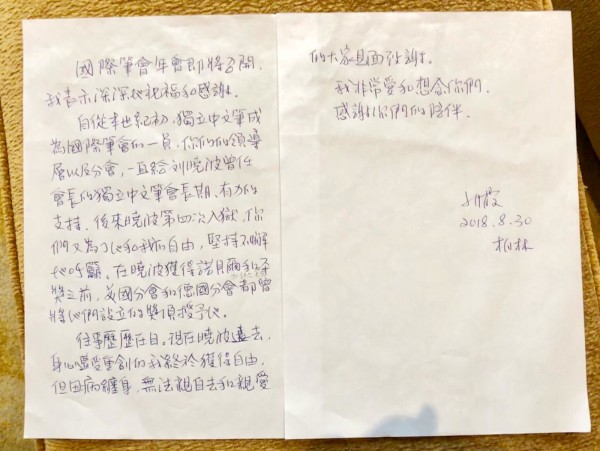 國際筆會年會即將召開，
我表示深深地祝福和感謝。
自從本世紀初，獨立中文筆成
為國際筆會的一員，你們的領導
層以及分會，一直給刘曉波曾任
會長的獨立中文筆會長期、有力的
支持。後來曉波第四次入獄，你
們又為了他和我的自由，堅持不懈
地呼籲。在曉波獲得諾貝爾和平
獎之前，美國分會和德國分會都曾
將他們設立的獎項授予他。
往事歷歷在目。現在曉波遠去，
身心遭受重創的我終於獲得自由，
但因病纏身，無法親自去和親愛
的大家見面致謝。
我非常愛和想念你們。
感謝你們的陪伴。
刘霞
2018.8.30
柏林